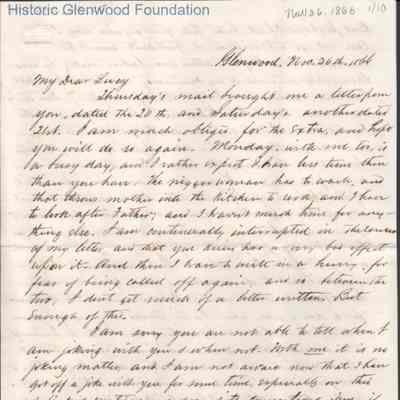 Historic Glenwood Foundation
Nov 26, 1866 1/10
Glenwood, Nov. 26th, 1866
My Dear Livey
Thursday's mail brought me a letter from
you, dated the 20th, and Saturday's another dated
21st. I am much obliged for the extra, and hope
you will do so again. Monday, with me too, is
a busy day, and I rather expect I have less time then
than you have. The negro woman has to wash, and
that throws mother into the kitchen to cook, and I have
to look after Father; and I haven't much time for any-
thing else. I am continually interrupted in the course
of my letter, and that you know has a very bad effect
upon it. And then I have to write in a hurry, for
fear of being called off again, and so between the
two, I don't get much of a letter written. But
enough of this.
I am sorry you are not able to tell when I
am joking with you & when not. With me it is no
joking matter, and I am not aware now that I have
got off a joke with you for some time, especially on this